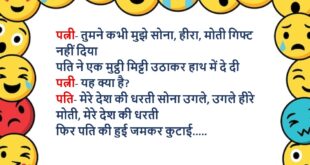 पत्नी- तुमने कभी मुझे सोना, हीरा, मोती गिफ्ट
नहीं दिया
पति ने एक मुट्ठी मिट्टी उठाकर हाथ में दे दी
पत्नी- यह क्या है?
पति- मेरे देश की धरती सोना उगले, उगले हीरे
मोती, मेरे देश की धरती
फिर पति की हुई जमकर कुटाई.....